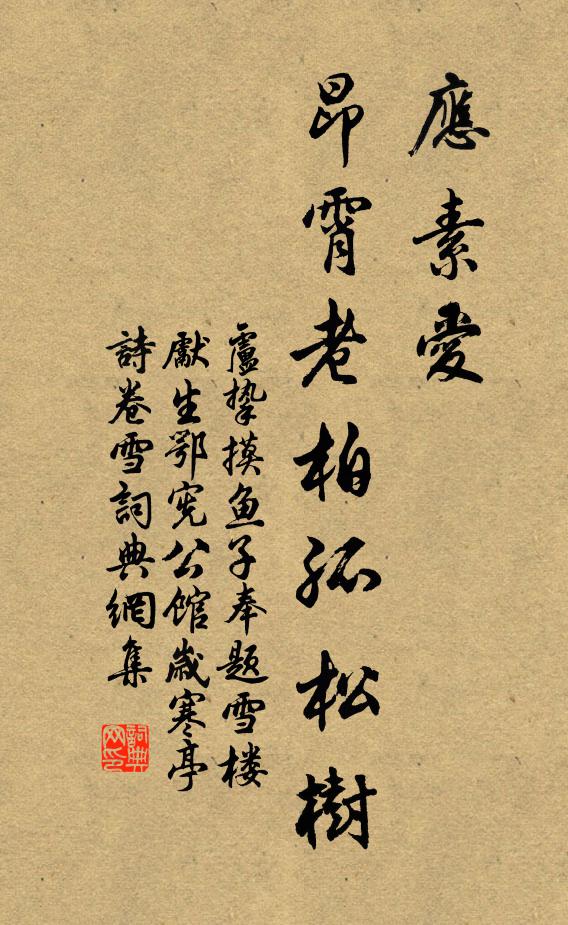 應素愛
昂霄老柏孤松樹
盧摯摸魚子奉題雪楼
獻生鄂宪公館嵗寒亭
詩卷雪詞典網集
詞典
网印